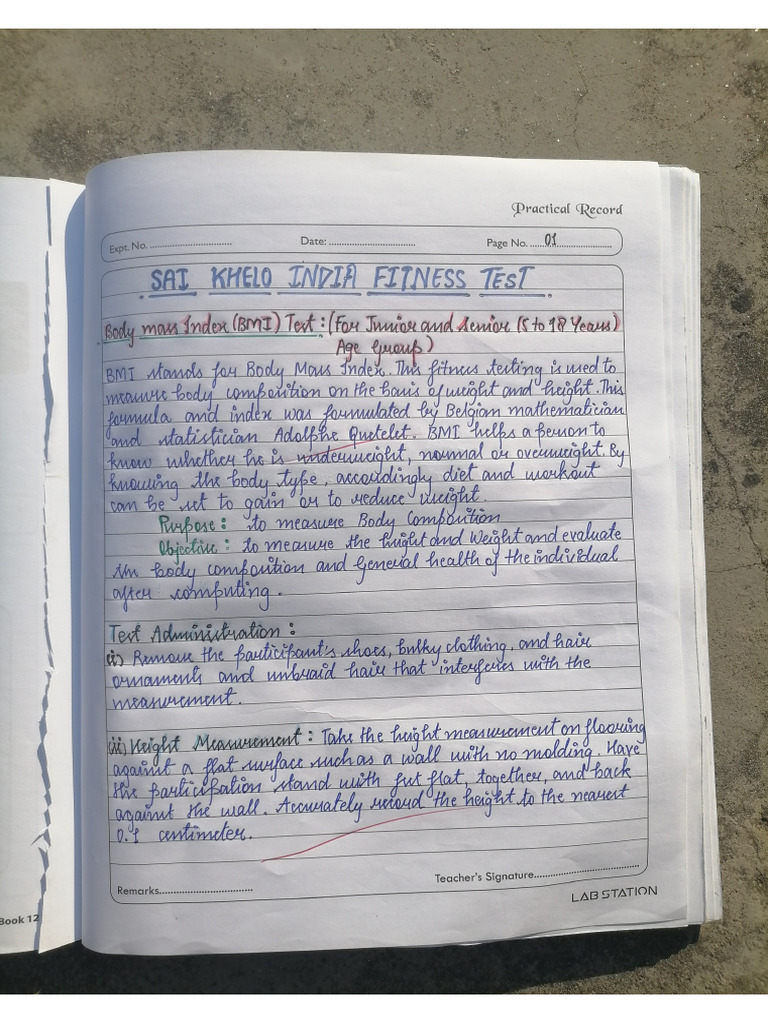 Practical Record
Expt. No. .............................. Date: ............................... Page No. ...01..............................
SAI KHELO INDIA FITNESS TEST
Body mass Index (BMI) Test : (For Junior and Senior (5 to 18 Years)
Age Group)
BMI stands for Body Mass Index. This fitness testing is used to
measure body composition on the basis of weight and height. This
formula and index was formulated by Belgian mathematician
and statistician Adolphe Quetelet. BMI helps a person to
know whether he is underweight, normal or overweight. By
knowing the body type, accordingly diet and workout
can be set to gain or to reduce weight.
Purpose : to measure Body Composition
Objective : to measure the height and Weight and evaluate
the body composition and General health of the individual
after computing.
Test Administration :
(i) Remove the participant's shoes, bulky clothing, and hair
ornaments and unbraid hair that interferes with the
measurement.
(ii) Height Measurement : Take the height measurement on flooring
against a flat surface such as a wall with no molding. Have
the participation stand with feet flat, together, and back
against the wall. Accurately record the height to the nearest
0.1 centimeter.
Teacher's Signature...................................
Remarks...............................
LAB STATION
Book 12